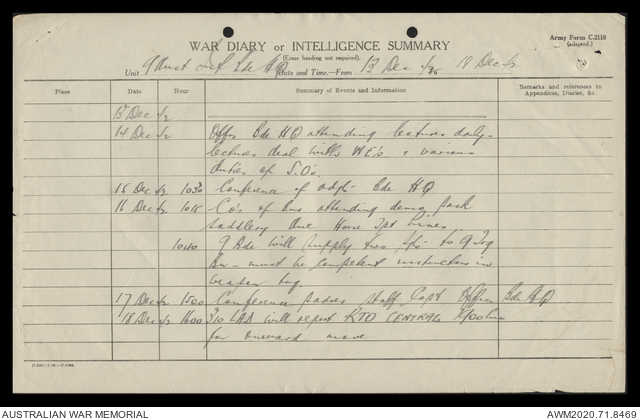 Army Form C.2118
(adapted.)
WAR DIARY or INTELLIGENCE SUMMARY
(Erase heading not required).
Unit 9 Aust Inf Bde HQ Date and Time.—From 13 Dec to 18 Dec
Place Date Hour Summary of Events and Information Remarks and references to Appendices, Diaries, &c.
13 Dec
14 Dec Offrs Bde HQ attending lectures daily-
lectures deal with WE's & various
duties of S.O's.
15 Dec 1030 Conference of Bde HQ
16 Dec 1015 Co's of attending demo pack
saddlery One Horse Tpt Lines
1040 9 Bde will supply two to 9 Trg
Bn - must be competent instructors in
weapon trg.
17 Dec 1500 Conference padres Staff Capt Office Bde HQ
18 Dec 1600 LAA will report RTO CENTRAL
for onward move
AUSTRALIAN WAR MEMORIAL
AWM2020.71.8469